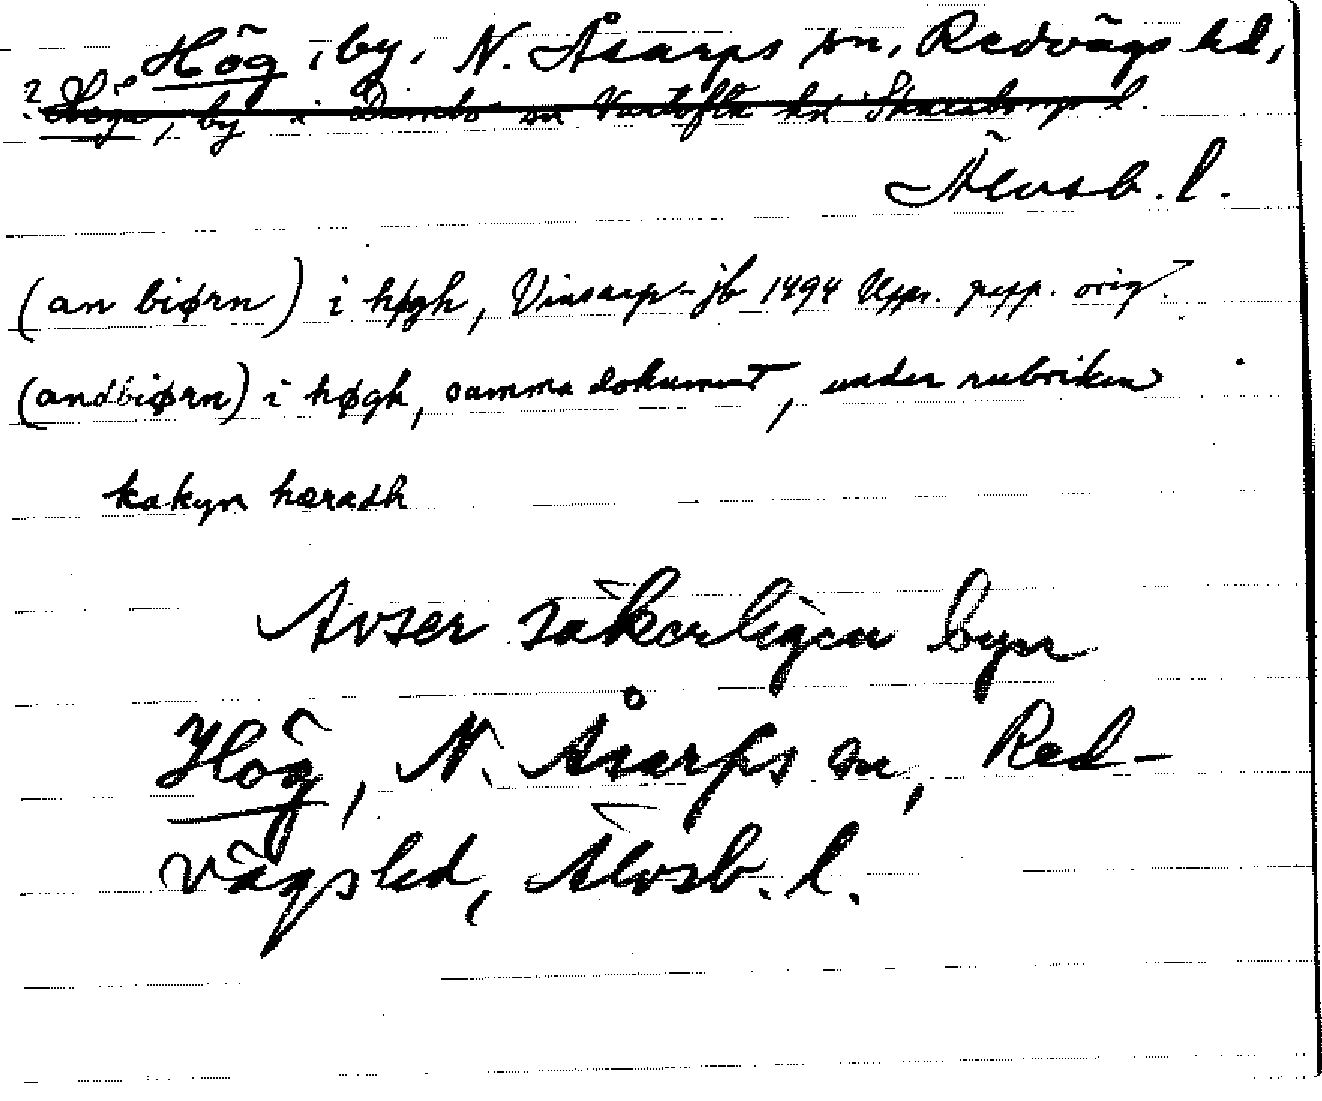 Hög, by, N. Åsarps sn, Redvägs hd,
? Höga, by i Dimbo sn Vartofta hd Skaraborgs l.
Älvsb. l.
(an biørn) i høgh, Vinsarps jb 1494 Upps. papp. orig.
(andbiørn) i høgh, samma dokument, under rubriken
kakyn hæradh
Avser säkerligen byn
Hög, N. Åsarps sn, Red-
vägs hd, Älvsb. l.